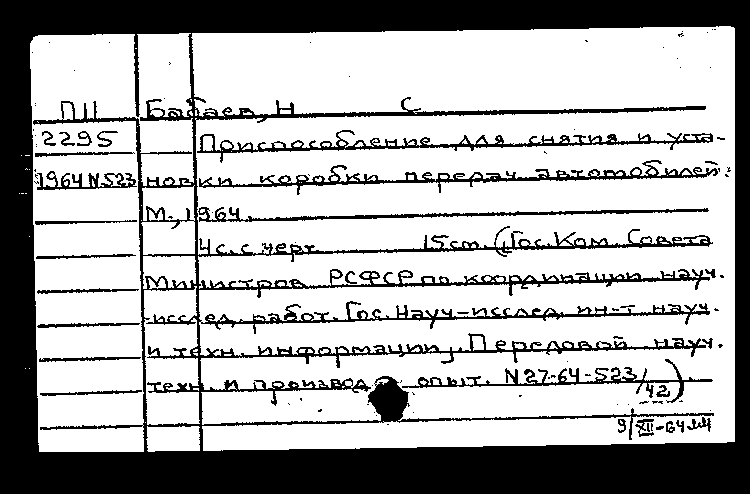 П11 Бабаев, Н С
2295 Приспособление для снятия и уста-
1964 N523 новки коробки передач автомобилей.
М., 1964.
4с. с черт 15 cm. (Гос. Ком. Совета
Министров РСФСР по координации науч.
-исслед. работ. Гос. Науч-исслед. ин-т науч.
и техн. информации, Передовой науч.
техн. и производ опыт. N 27-64-523/42).
9/XII-64